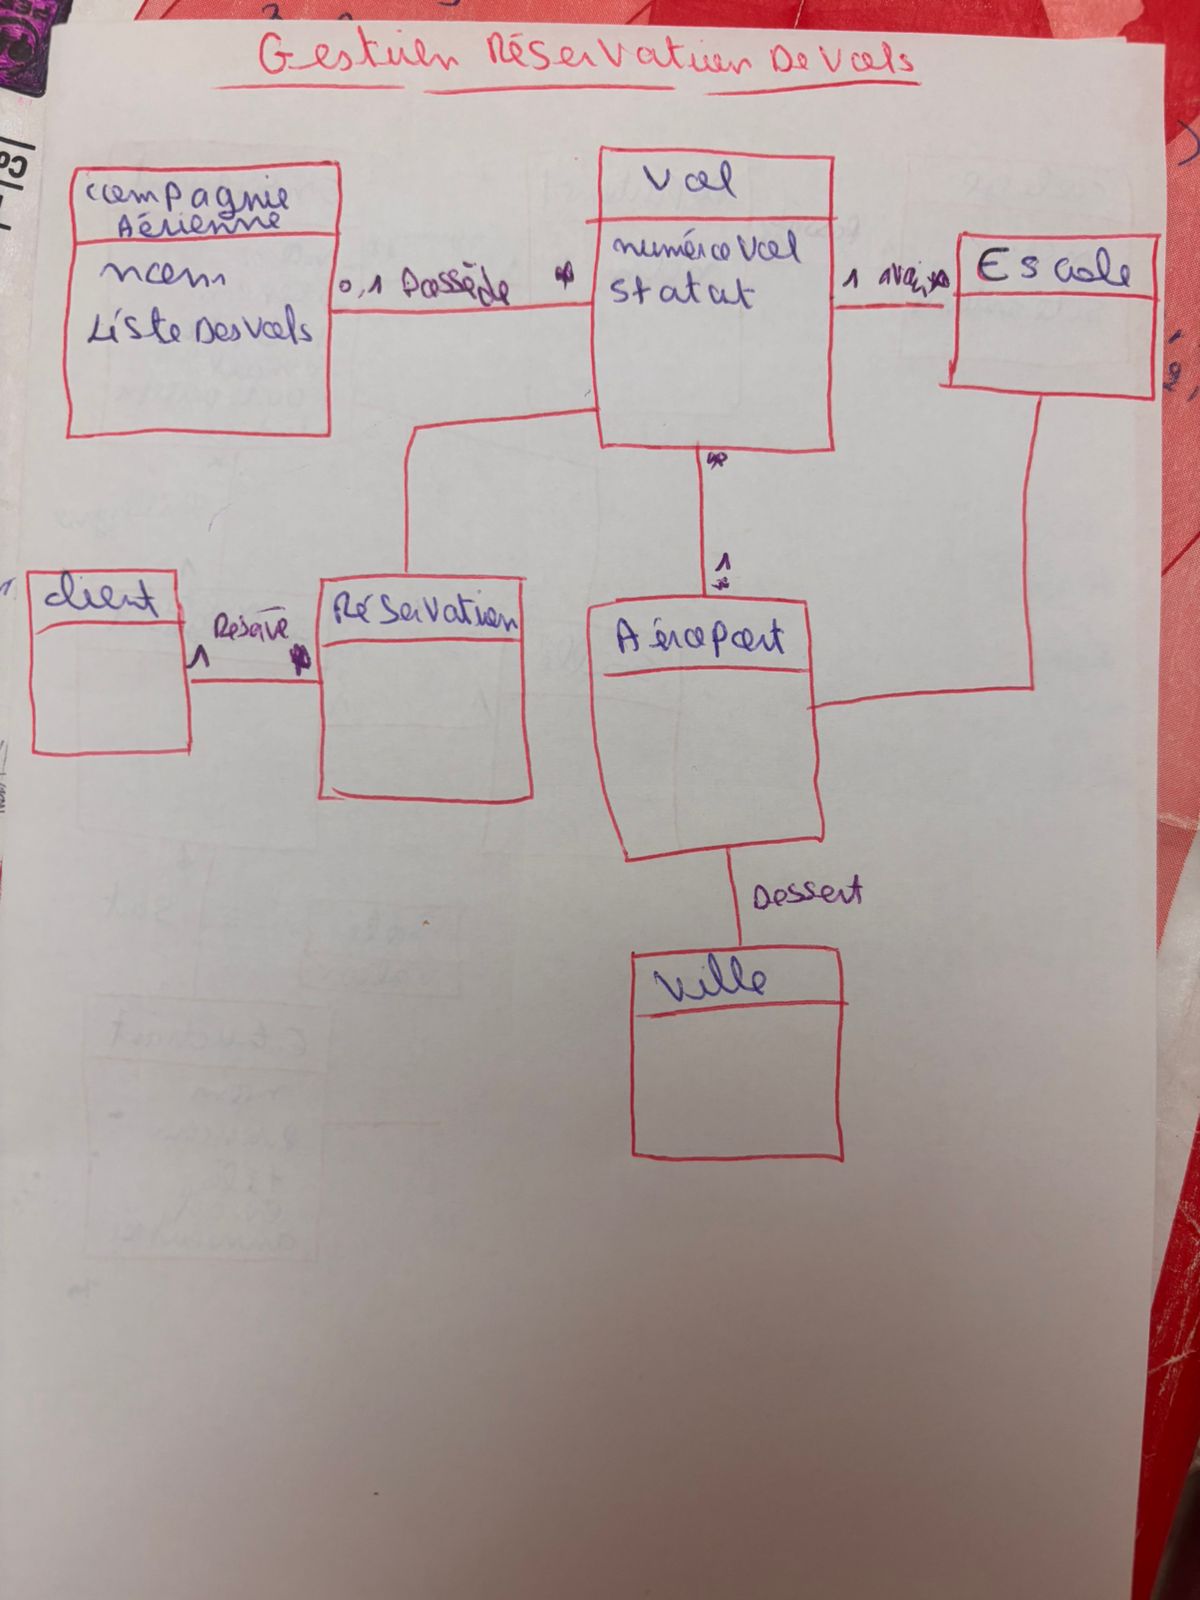 Gestion Réservation De Vols
Compagnie
Aérienne
nom
Liste Des Vols
0,1 Possède *
Vol
numéro Vol
Statat
1 avoir *
Escale
*
1
Client
1 Réserve *
Réservation
Aéroport
Dessert
Ville